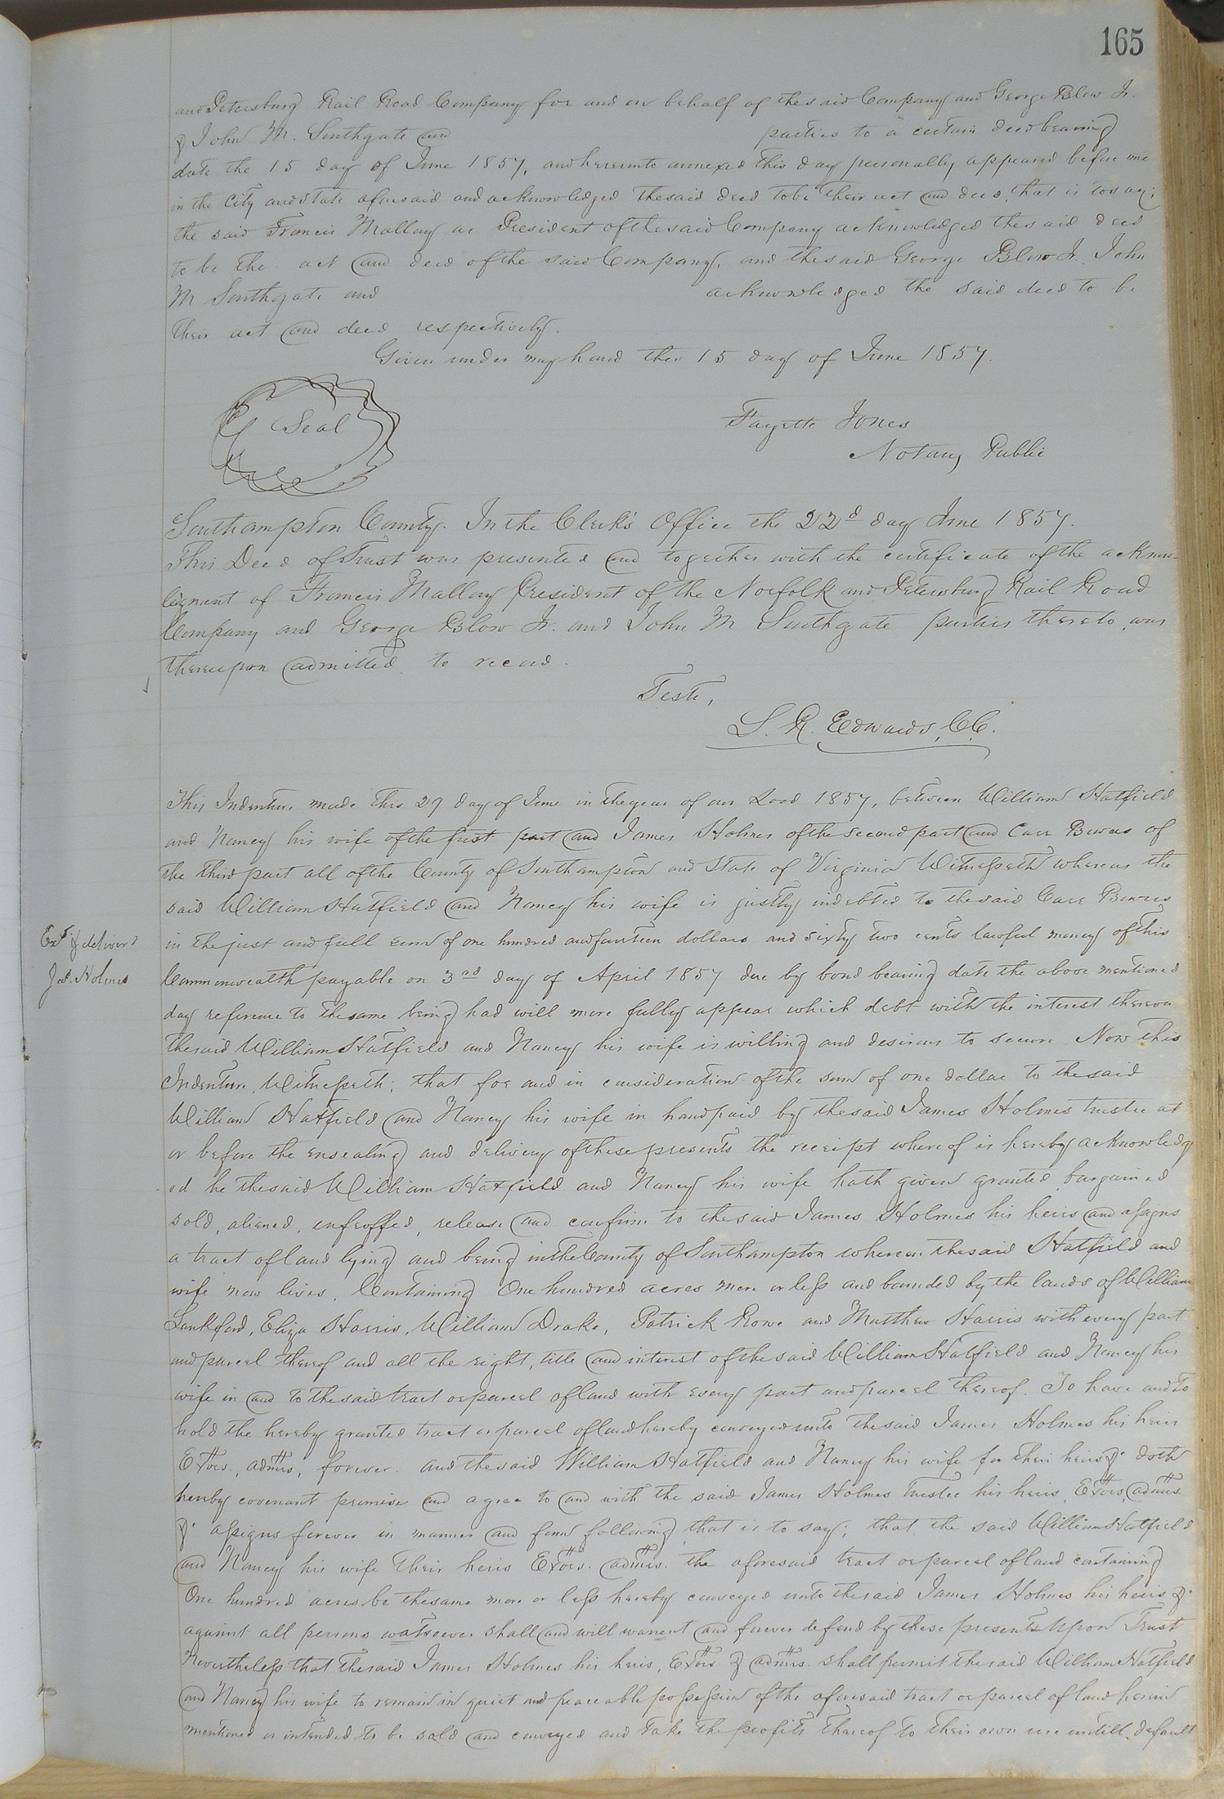 165
and Petersburg Rail Road Company for and on behalf of the said Company and George Blow Jr.
& John M. Southgate and parties to a certain deed bearing
date the 15 day of June 1857, and hereunto annexed this day personally appeared before me
in the City and state aforesaid and acknowledged the said deed to be their act and deed, that is to say;
the said Francis Mallory as President of the said Company acknowledged the said deed
to be the act and deed of the said Company, and the said George Blow Jr. John
M Southgate and acknowledged the said deed to be
their act and deed respectively.
Given under my hand this 15 day of June 1857.
Seal
Fayette Jones
Notary Public
Southampton County. In the Clerk's Office the 22d day June 1857.
This Deed of Trust was presented and together with the certificate of the acknow
legment of Francis Mallory President of the Norfolk and Petersburg Rail Road
Company and George Blow Jr. and John M Southgate parties thereto was
thereupon admitted to record.
Teste,
L. R. Edwards, C.C.
This Indenture made this 29 day of June in the year of our Lord 1857, between William Hatfield
and Nancy his wife of the first part and James Holmes of the second part and Carr Bowers of
the third part all of the County of Southampton and State of Virginia Witnesseth whereas the
said William Hatfield and Nancy his wife is justly indebted to the said Carr Bowers
in the just and full sum of one hundred and fourteen dollars and sixty two cents lawful money of this
Commonwealth payable on 3rd day of April 1857 due by bond bearing date the above mentioned
day reference to the same being had will more fully appear which debt with the interest thereon
the said William Hatfield and Nancy his wife is willing and desirous to secure. Now this
Indenture Witnesseth; that for and in consideration of the sum of one dollar to the said
William Hatfield and Nancy his wife in hand paid by the said James Holmes trustee at
or before the ensealing and delivery of these presents the receipt whereof is hereby acknowledg
ed he the said William Hatfield and Nancy his wife hath given granted bargained
sold, aliened, enfeoffed, release and confirm to the said James Holmes his heirs and assigns
a tract of land lying and being in the County of Southampton whereon the said Hatfield and
wife now lives, Containing One hundred acres more or less and bounded by the lands of William
Lankford, Eliza Harris, William Drake, Patrick Rowe and Matthew Harris with every part
and parcel thereof and all the right, title and interest of the said William Hatfield and Nancy his
wife in and to the said tract or parcel of land with every part and parcel thereof. To have and to
hold the hereby granted tract or parcel of land hereby conveyed unto the said James Holmes his heirs
Exors., admrs, forever. and the said William Hatfield and Nancy his wife for their heirs &c doth
hereby covenant promise and agree to and with the said James Holmes trustee his heirs, Exors, admrs
&c assigns forever in manner and form following, that is to say; that the said William Hatfield
and Nancy his wife their heirs Exors. admrs. the aforesaid tract or parcel of land containing
One hundred acres be the same more or less hereby conveyed unto the said James Holmes his heirs &c
against all persons watsoever shall and will warrent and forever defend by these presents Upon Trust
Nevertheless that the said James Holmes his heirs, Exors. & admrs. shall permit the said William Hatfield
and Nancy his wife to remain in quiet and peaceable possession of the aforesaid tract or parcel of land herein
mentioned or intended to be sold and conveyed and take the profits thereof to their own use untill default
Exd. & deliverd
Jas. Holmes